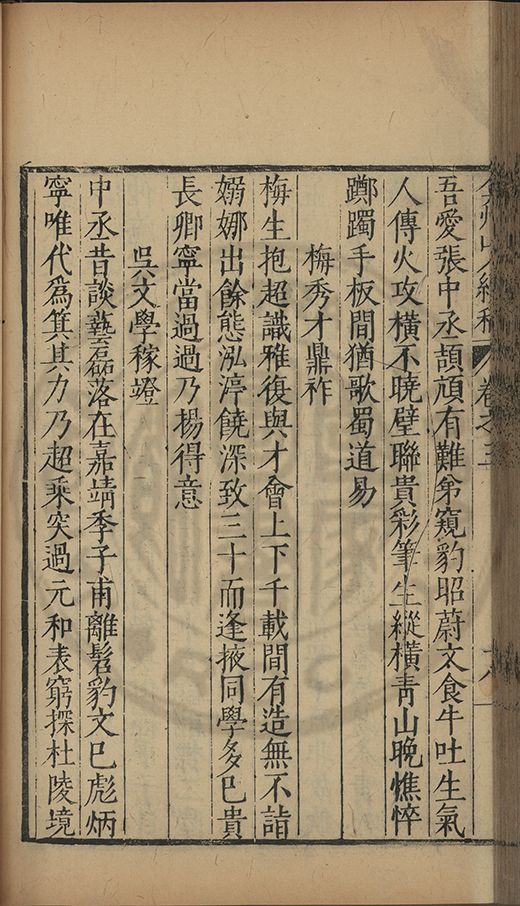 卷之三
吾愛張中丞頡頏有難弟窺豹昭蔚文食牛吐生氣
人傳火攻橫不曉璧聯貴彩筆生縱橫青山晚憔悴
躑躅手板間猶歌蜀道易
梅秀才鼎祚
梅生抱超識雅復與才會上下千載間有造無不詣
嫋娜出餘態泓渟饒深致三十而逢掖同學多已貴
長卿寧當過過乃揚得意
吳文學稼竳
中丞昔談藝磊落在嘉靖季子甫離髫豹文已彪炳
寧唯代爲箕其力乃超乘突過元和表窮探杜陵境